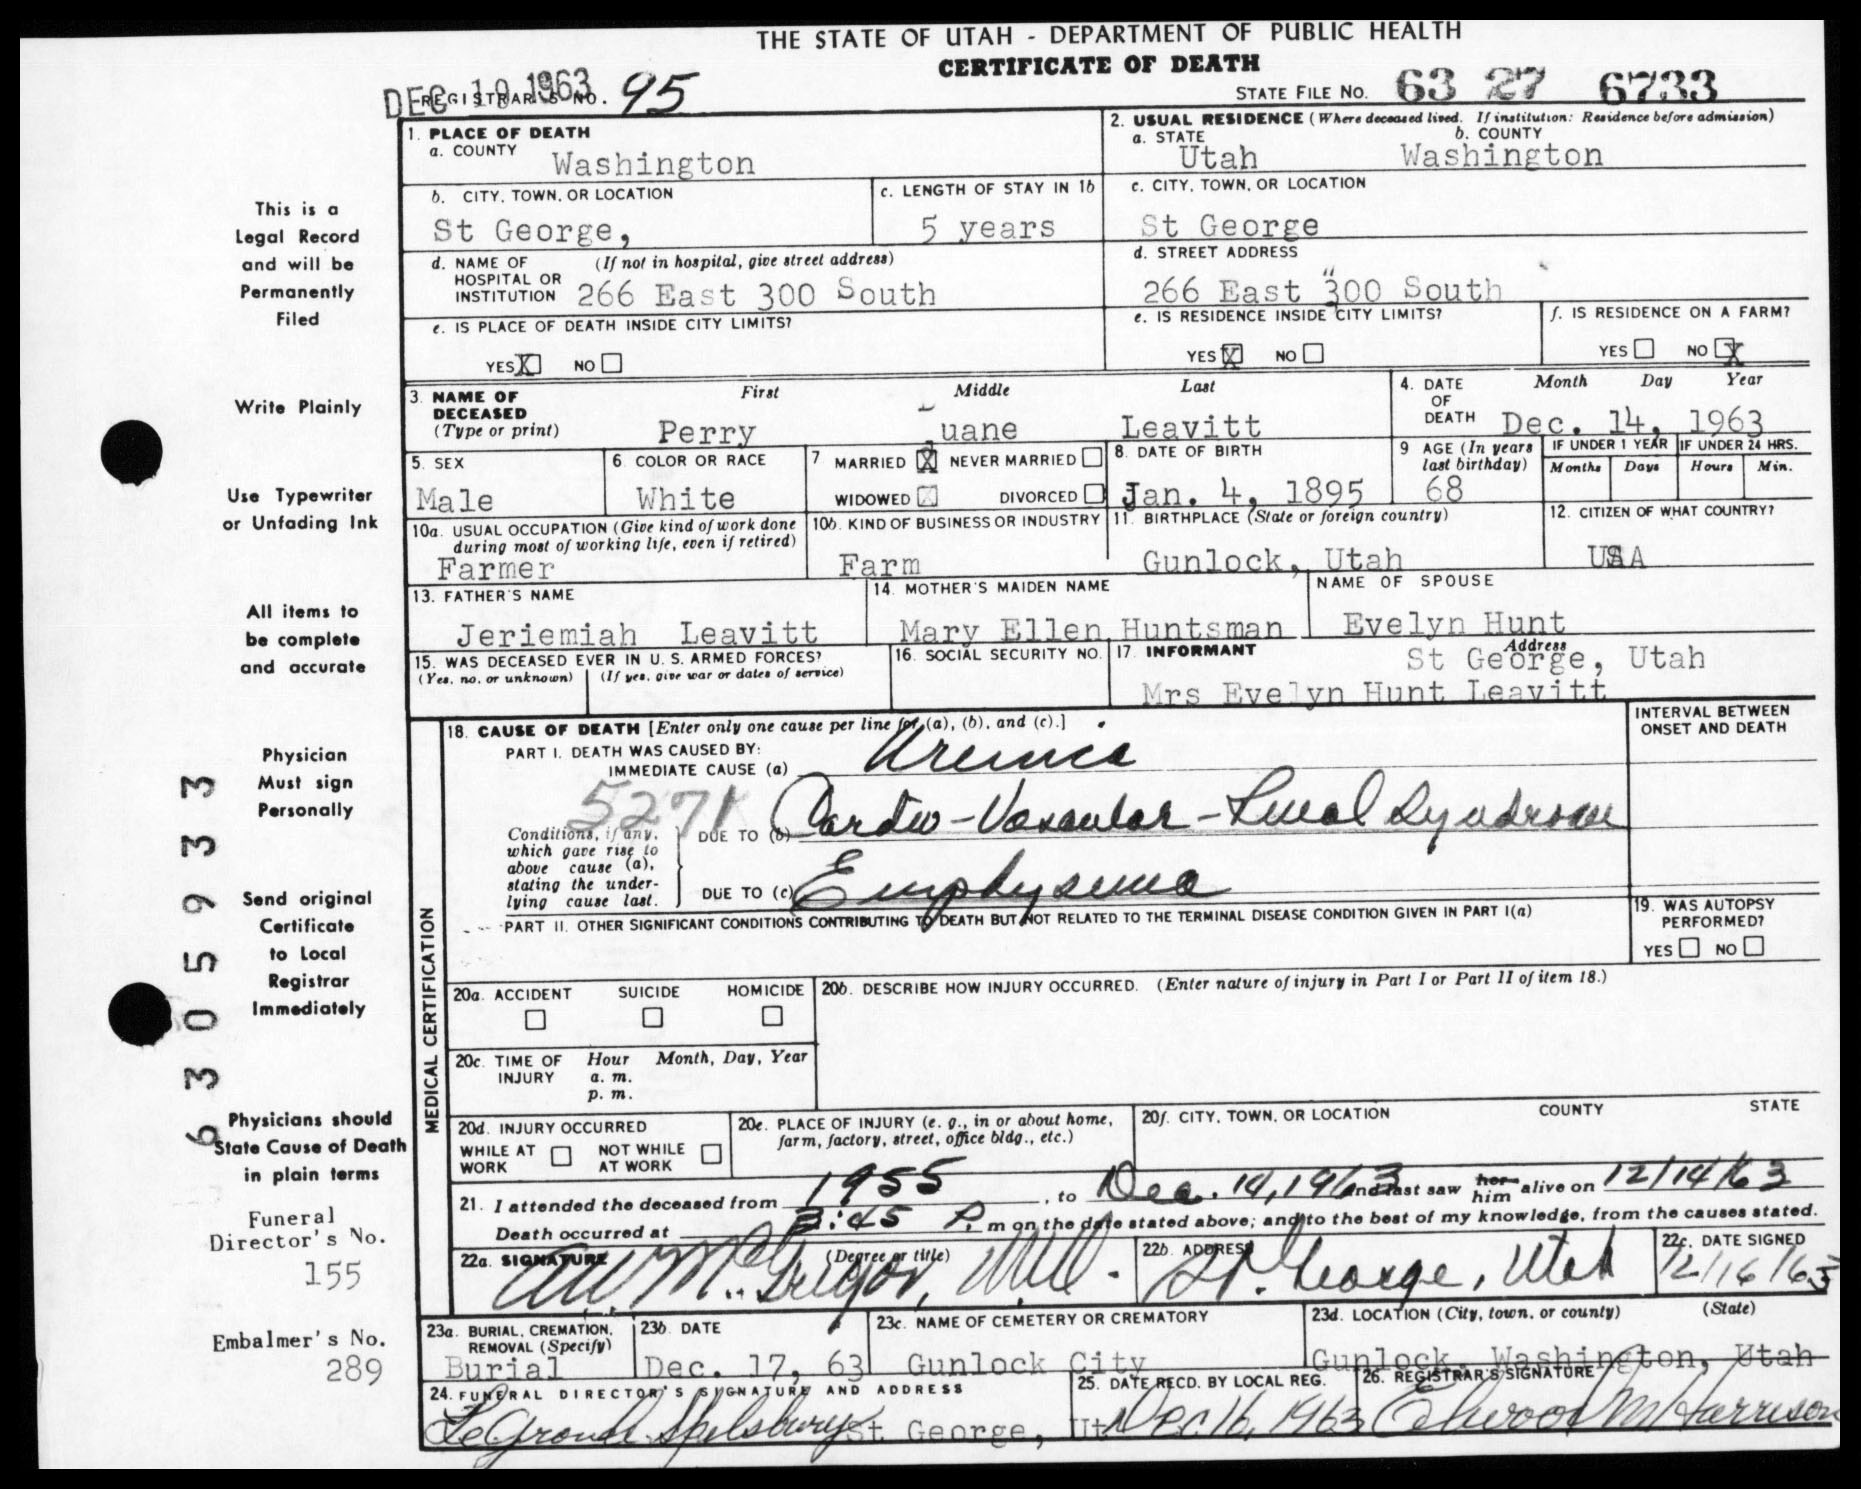 THE STATE OF UTAH - DEPARTMENT OF PUBLIC HEALTH
CERTIFICATE OF DEATH
DEC 19 1963
REGISTRAR'S NO. 95
STATE FILE NO. 63 27 6733
1. PLACE OF DEATH
a. COUNTY Washington
2. USUAL RESIDENCE (Where deceased lived. If institution: Residence before admission)
a. STATE Utah b. COUNTY Washington
b. CITY, TOWN, OR LOCATION St George,
c. LENGTH OF STAY IN 1b 5 years
c. CITY, TOWN, OR LOCATION St George
d. NAME OF HOSPITAL OR INSTITUTION (If not in hospital, give street address) 266 East 300 South
d. STREET ADDRESS 266 East 300 South
e. IS PLACE OF DEATH INSIDE CITY LIMITS?
YES X NO
e. IS RESIDENCE INSIDE CITY LIMITS?
YES X NO
f. IS RESIDENCE ON A FARM?
YES NO X
3. NAME OF DECEASED (Type or print)
First Middle Last
Perry Duane Leavitt
4. DATE OF DEATH Month Day Year
Dec. 14, 1963
5. SEX Male
6. COLOR OR RACE White
7 MARRIED X NEVER MARRIED
WIDOWED X DIVORCED
8. DATE OF BIRTH Jan. 4, 1895
9 AGE (In years last birthday) 68
IF UNDER 1 YEAR Months Days
IF UNDER 24 HRS. Hours Min.
10a. USUAL OCCUPATION (Give kind of work done during most of working life, even if retired)
Farmer
10b. KIND OF BUSINESS OR INDUSTRY
Farm
11. BIRTHPLACE (State or foreign country)
Gunlock, Utah
12. CITIZEN OF WHAT COUNTRY?
USA
13. FATHER'S NAME
Jeriemiah Leavitt
14. MOTHER'S MAIDEN NAME
Mary Ellen Huntsman
NAME OF SPOUSE
Evelyn Hunt
15. WAS DECEASED EVER IN U. S. ARMED FORCES?
(Yes, no, or unknown) (If yes, give war or dates of service)
16. SOCIAL SECURITY NO.
17. INFORMANT Address
St George, Utah
Mrs Evelyn Hunt Leavitt
MEDICAL CERTIFICATION
18. CAUSE OF DEATH [Enter only one cause per line for (a), (b), and (c).]
PART I. DEATH WAS CAUSED BY:
IMMEDIATE CAUSE (a) Uremia
5271
Conditions, if any, which gave rise to above cause (a), stating the underlying cause last.
DUE TO (b) Cardio-Vascular-Renal Syndrome
DUE TO (c) Emphysema
INTERVAL BETWEEN ONSET AND DEATH
PART II. OTHER SIGNIFICANT CONDITIONS CONTRIBUTING TO DEATH BUT NOT RELATED TO THE TERMINAL DISEASE CONDITION GIVEN IN PART I(a)
19. WAS AUTOPSY PERFORMED?
YES NO
20a. ACCIDENT SUICIDE HOMICIDE
20b. DESCRIBE HOW INJURY OCCURRED. (Enter nature of injury in Part I or Part II of item 18.)
20c. TIME OF INJURY Hour Month, Day, Year
a. m.
p. m.
20d. INJURY OCCURRED
WHILE AT WORK NOT WHILE AT WORK
20e. PLACE OF INJURY (e. g., in or about home, farm, factory, street, office bldg., etc.)
20f. CITY, TOWN, OR LOCATION COUNTY STATE
21. I attended the deceased from 1955, to Dec. 14, 1963 and last saw her him alive on 12/14/63
Death occurred at 3:45 P. m on the date stated above; and to the best of my knowledge, from the causes stated.
22a. SIGNATURE (Degree or title)
McGregor, M.D.
22b. ADDRESS
St. George, Utah
22c. DATE SIGNED
12/16/63
23a. BURIAL, CREMATION, REMOVAL (Specify)
Burial
23b DATE
Dec. 17, 63
23c. NAME OF CEMETERY OR CREMATORY
Gunlock City
23d. LOCATION (City, town, or county) (State)
Gunlock, Washington, Utah
24. FUNERAL DIRECTOR'S SIGNATURE AND ADDRESS
LeGrande Spilsbury St George, Ut
25. DATE RECD. BY LOCAL REG.
Dec. 16, 1963
26. REGISTRAR'S SIGNATURE
Elwood M Harrison
This is a
Legal Record
and will be
Permanently
Filed
Write Plainly
Use Typewriter
or Unfading Ink
All items to
be complete
and accurate
Physician
Must sign
Personally
Send original
Certificate
to Local
Registrar
Immediately
Physicians should
State Cause of Death
in plain terms
Funeral
Director's No.
155
Embalmer's No.
289
6305933